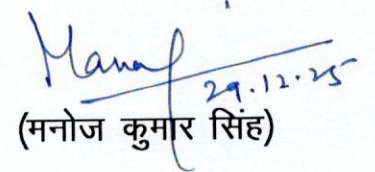 Manoj
29.12.25
(मनोज कुमार सिंह)